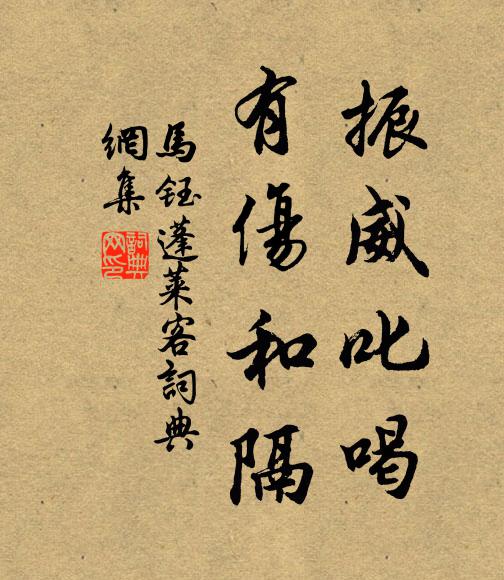 振威叱喝
有傷和隔
馬鈺蓬萊客詞典
網集
詞典
网印